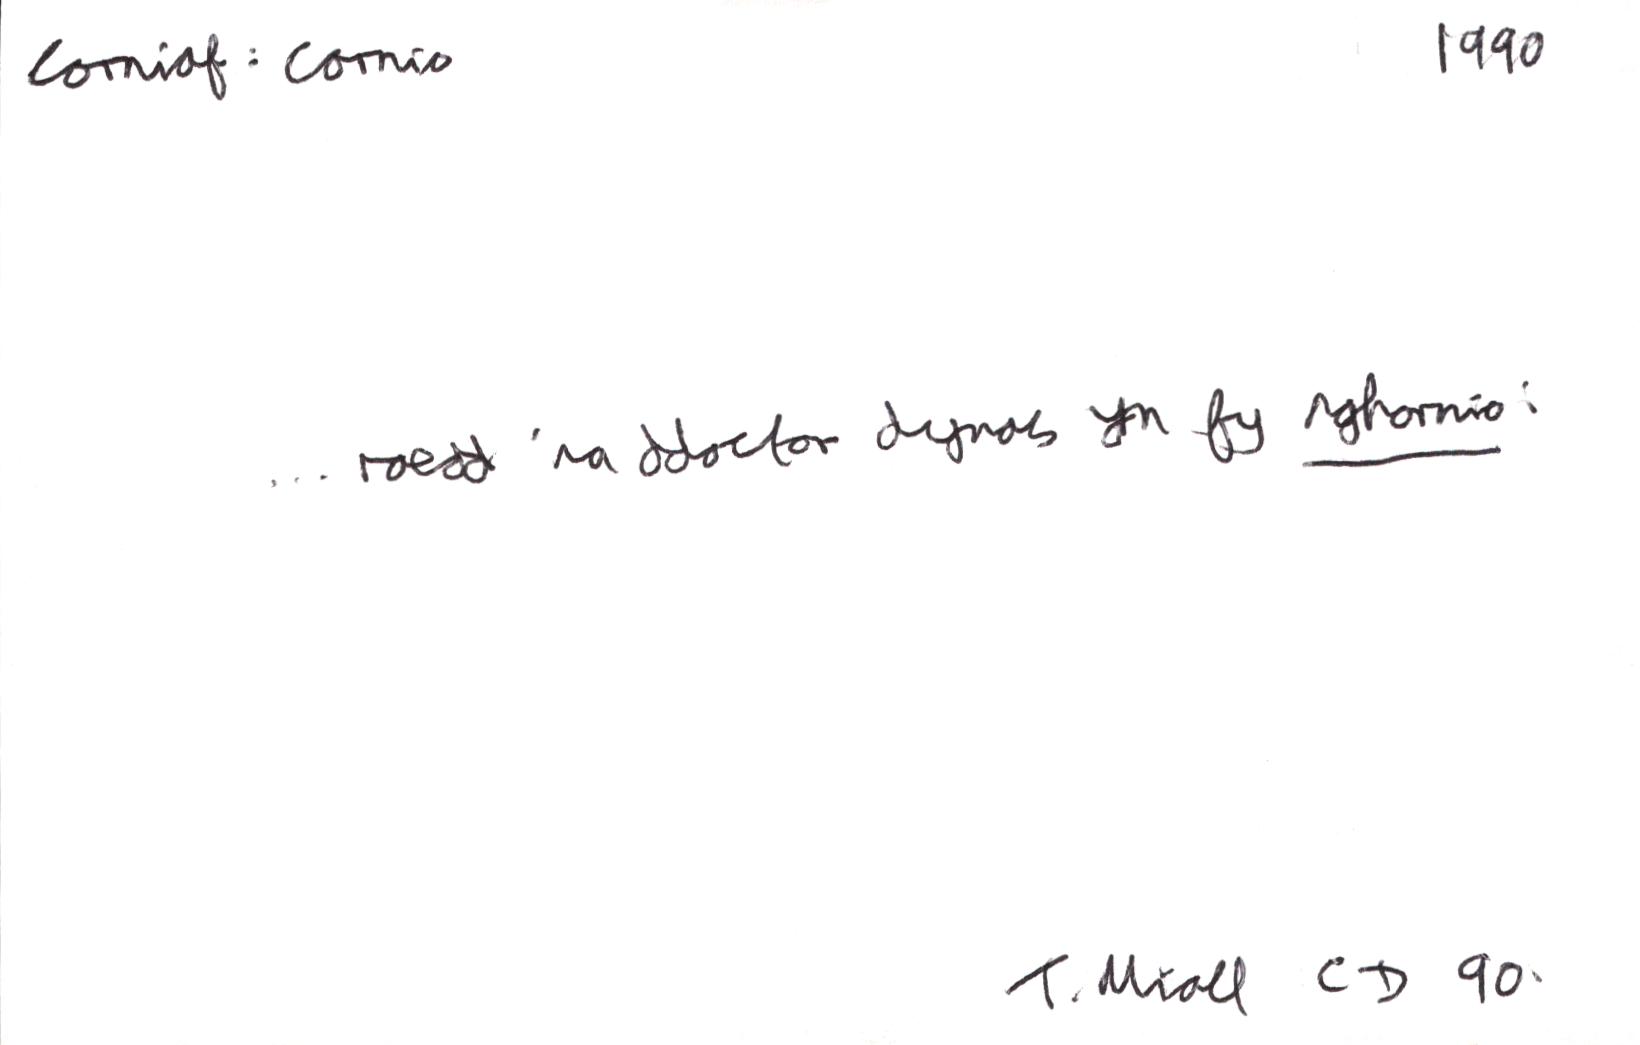 Corniaf: Cornio 1990
... roedd 'na ddoctor dynas yn fy nghornio:
T. Miall CD 90.